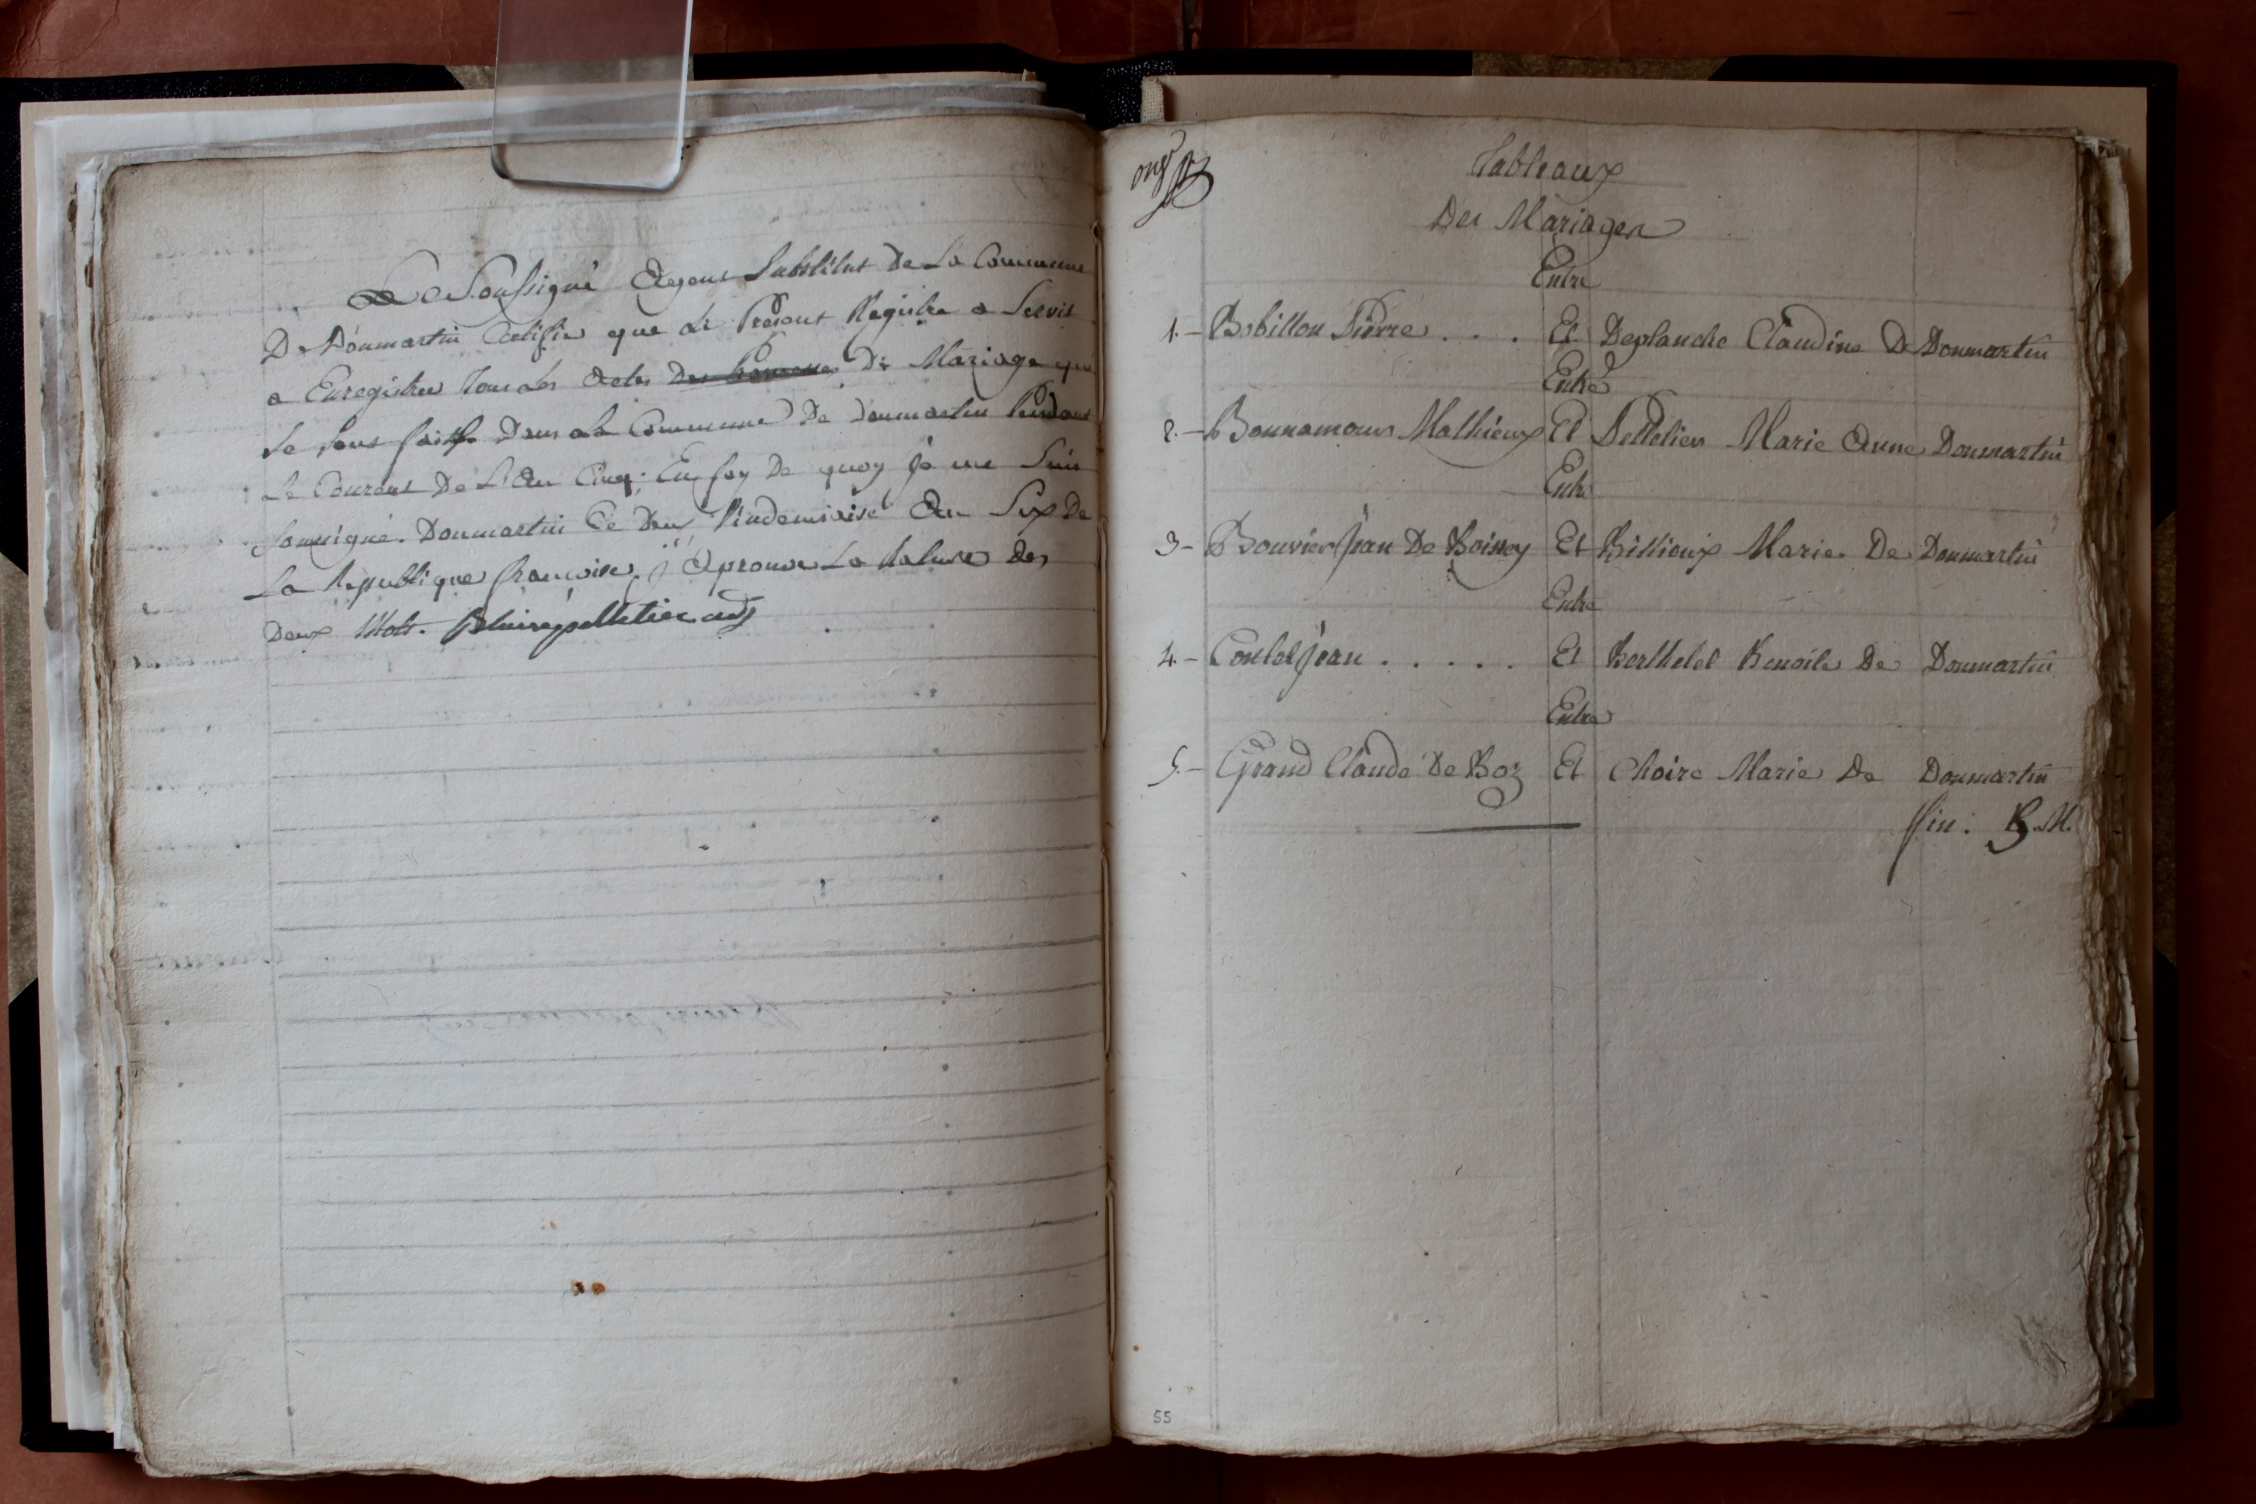 Le Soussigné Agent Substitut De La Commune
De Donmartin Certifie que Le Présent Registre a Servit
a Enregistrer Tous Les Actes Des De Mariage qui
Se sont fait Dans La Commune De Donmartin Pendant
Le Courent De L'an Cinq. En foy De quoy Je me Suis
soussigné. Donmartin Ce Deux Vindemiaire An Six De
La Republique francoise. J'aprouve La Rature des
Deux Mots. pelletier adj
onze
Tableaux
Des Mariages
Entre
1.- Bobillon Pierre . . . . Et Deplanche Claudine De Donmartin
Entre
2.- Bonnamour Mathieux Et Pelletier Marie Anne Donmartin
Entre
3- Bouvier Jean De Boissey Et Billioux Marie De Donmartin
Entre
4.- Coulet Jean . . . . . Et Berthelet Benoite De Donmartin
Entre
5.- Grand Claude De Boz Et Choire Marie De Donmartin
fin. B.M.
55